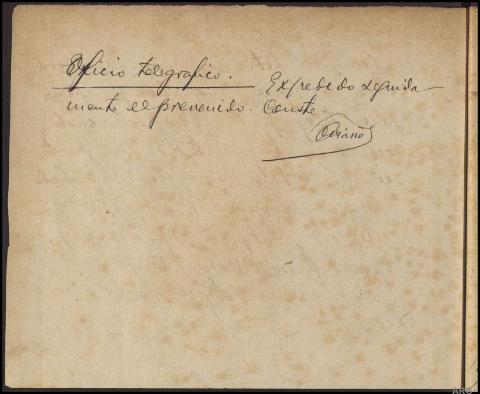 Oficio telegrafico. Expedido seguida-
mente el prevenido. Conste.